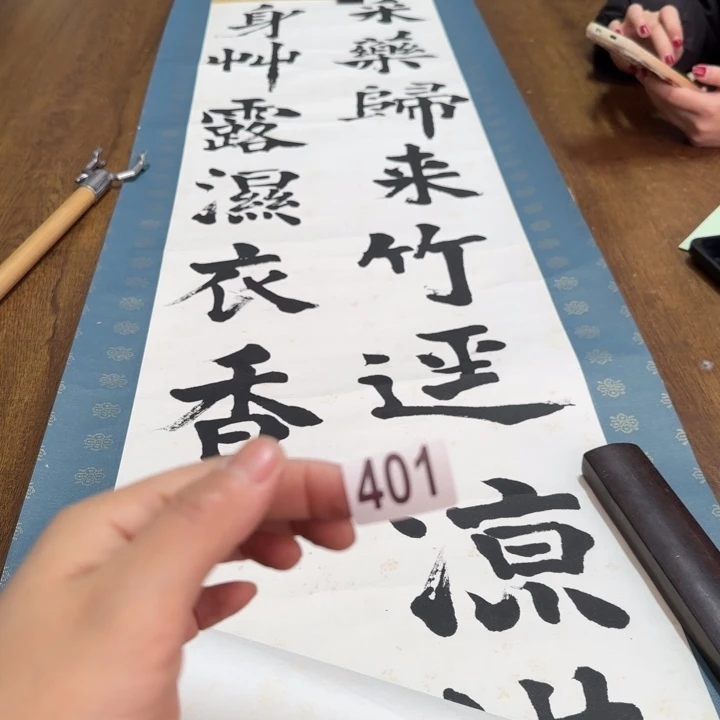 采藥歸来竹逕涼
身艸露濕衣香
401